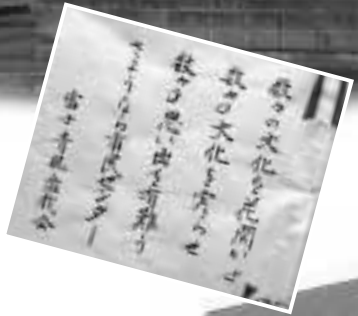 数々の文化を花開
数々の文化を実らせ
数々の思い出を有難う
さようなら青年センター
富士青年